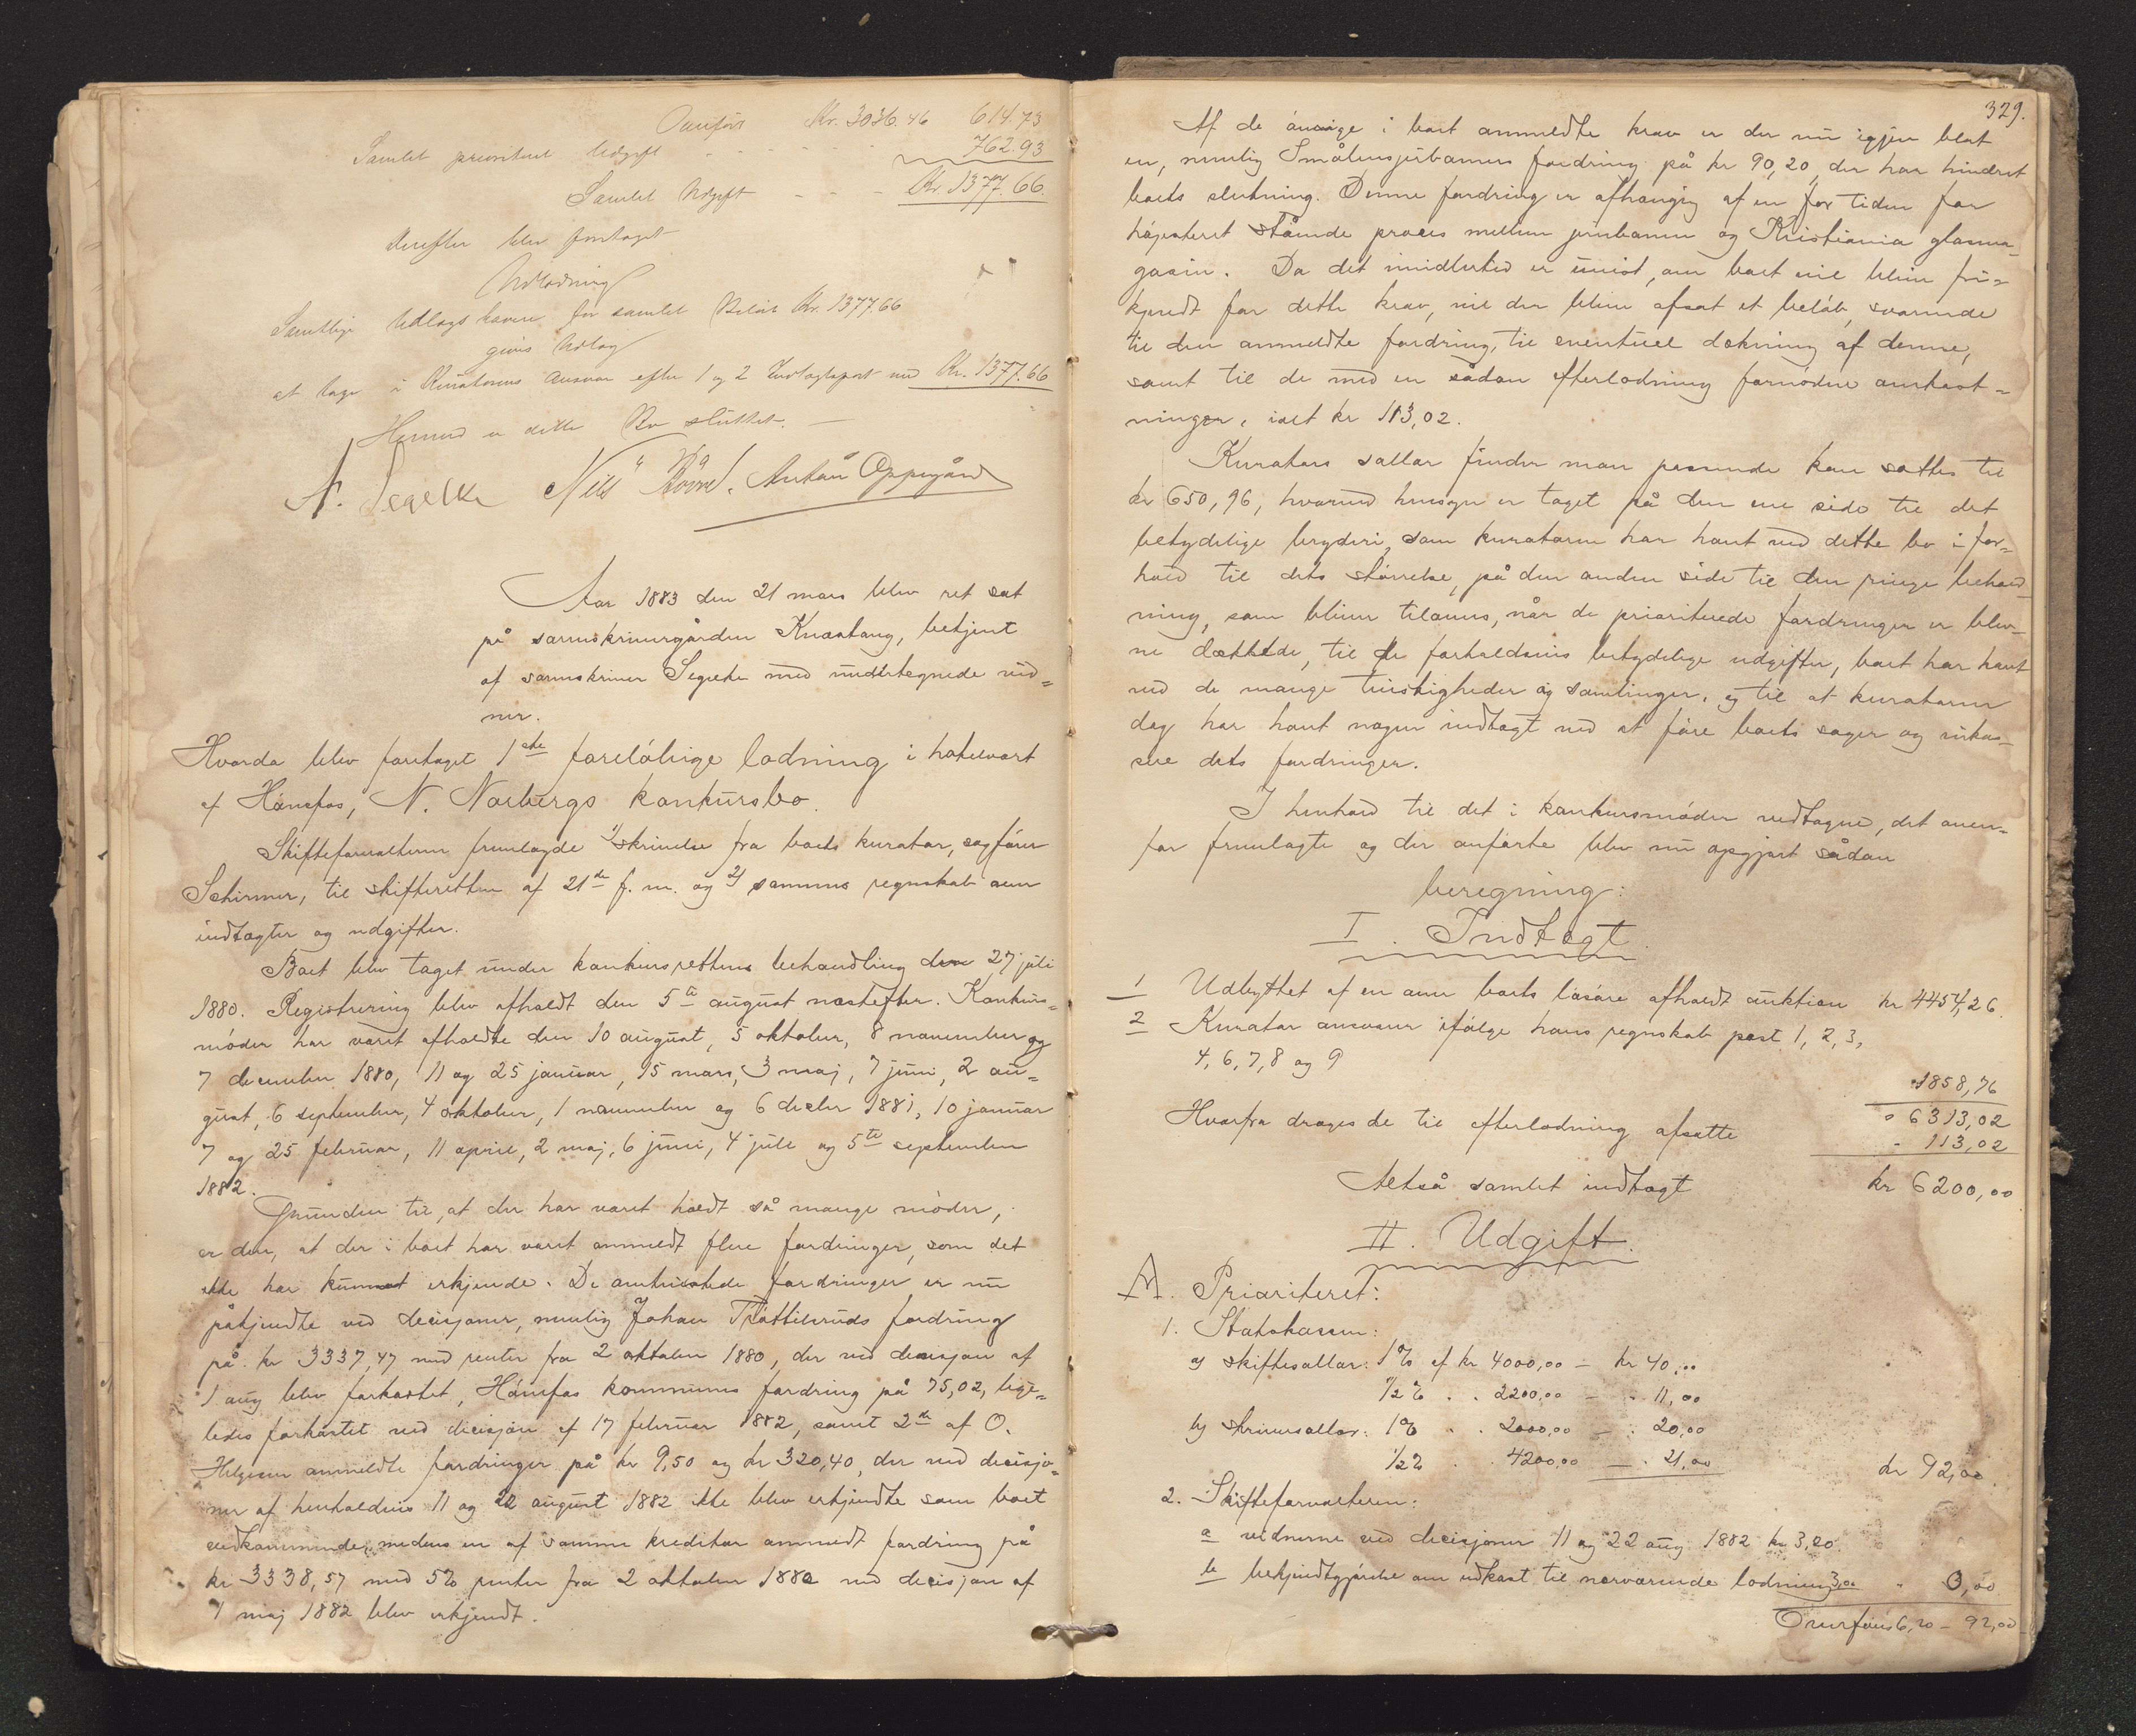 Overført Kr. 3036.46 614.73
Samlet prioriteret Udgift - - - - - 762.93
Samlet Udgift - - - Kr. 1377.66.
Derefter blev foretaget
Udlodning
Samtlige Udlægshavere for samlet Beløb Kr. 1377.66
gives Udlæg
at tage i Kuratorens Ansvar efter 1 og 2 Indtægtspost med Kr. 1377.66
Hermed er dette Bo sluttet. —
A. Segelke Nils Anton Oppegård
Aar 1883 den 21 mars blev ret sat
på sorenskrivergården Knastang, betjent
af sorenskriver Segelke med undertegnede vid=
ner.
Hvorda blev foretaget 1ste foreløbige lodning i hotelvært
af Hønefos, N. Norbergs konkursbo.
Skifteforvalteren fremlagde 1) skrivelse fra boets kurator, sagfører
Schirmer, til skifteretten af 21de f. m. og 2) sammes regnskab over
indtægter og udgifter.
Boet blev taget under konkursrettens behandling den 27 juli
1880. Registrering blev afholdt den 5te august næstefter. Konkurs=
møder har været afholdte den 10 august, 5 oktober, 8 november og
7 december 1880, 11 og 25 januar, 15 mars, 3 maj, 7 juni, 2 au=
gust, 6 september, 4 oktober, 1 november og 6 decbr 1881, 10 januar
7 og 25 februar, 11 april, 2 maj, 6 juni, 4 juli og 5te september
1882.
Grunden til, at der har været holdt så mange møder,
er den, at der i boet har været anmeldt flere fordringer, som det
ikke har kunnet erkjende. De omtvistede fordringer er nu
påkjendte ved decisjoner, nemlig Johan fordring
på kr 3337,47 med renter fra 2 oktober 1880, der ved decisjon af
1 aug blev forkastet, Hønefos kommunes fordring på 75,02, lige=
ledes forkastet ved decisjon af 17 februar 1882, samt 2de af O.
Helgesen anmeldte fordringer på kr 9,50 og kr 320,40, der ved decisjo=
ner af henholdsvis 11 og 22 august 1882 ikke blev erkjendte som boet
vedkommende, medens en af samme kreditor anmeldt fordring på
kr 3338,57 med 5% renter fra 2 oktober 1880 ved decisjon af
1 maj 1882 blev erkjendt.
329.
Af de øvrige i boet anmeldte krav er der nu igjen blot
en, nemlig Smålensjernbanens fordring på kr 90,20, der har hindret
boets slutning. Denne fordring er afhængig af en for tiden for
højesteret stående proces mellem jernbanen og Kristiania glasma=
gasin. Da det imidlertid er uvist, om boet vil blive fri=
kjendt for dette krav, vil der blive afsat et beløb, svarende
til den anmeldte fordring, til eventuel dækning af denne,
samt til de med en sådan efterlodning fornødne omkost=
ninger, ialt kr 113,02.
Kurators sallær finder man passende kan sættes til
kr 650,96, hvorved hensyn er taget på den ene side til det
betydelige bryderi, som kuratoren har havt med dette bo i for=
hold til dets størrelse, på den anden side til den ringe behold=
ning, som bliver tilovers, når de prioriterede fordringer er blev=
ne dækkede, til de forholdsvis betydelige udgifter, boet har havt
ved de mange tvistigheder og samlinger, og til at kuratoren
dog har havt nogen indtægt ved at føre boets sager og inkas=
sere dets fordringer.
I henhold til det i konkursmøder vedtagne, det oven=
for fremlagte og der anførte blev nu opgjort sådan
beregning:
I. Indtægt.
1 Udbyttet af en over boets løsøre afholdt auktion kr 4454,26.
2 Kurator ansvarer ifølge hans regnskab post 1, 2, 3,
4, 6, 7, 8 og 9
" 1858,76
" 6313,02
Hvorfra drages de til efterlodning afsatte - 113,02
Altså samlet indtægt kr 6200,00
II. Udgift.
A. Prioriteret:
1. Statskassen:
a) skiftesallær: 1% af kr 4000,00 — kr 40,00
1/2% . . 2200,00 — . 11,00
b) skriversallær: 1% . . 2000,00 — . 20,00
1/2% . . 4200,00 — . 21,00 kr 92,00.
2. Skifteforvalteren:
a vidnerne ved decisjoner 11 og 22 aug 1882 kr 3,20.
b bekjendtgjørelse om udkast til nærværende lodning 3,00 " 0,00
Overføres 6,20 — 92,00